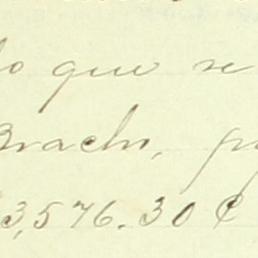 que se
Bracho,
3,576.30 ¢